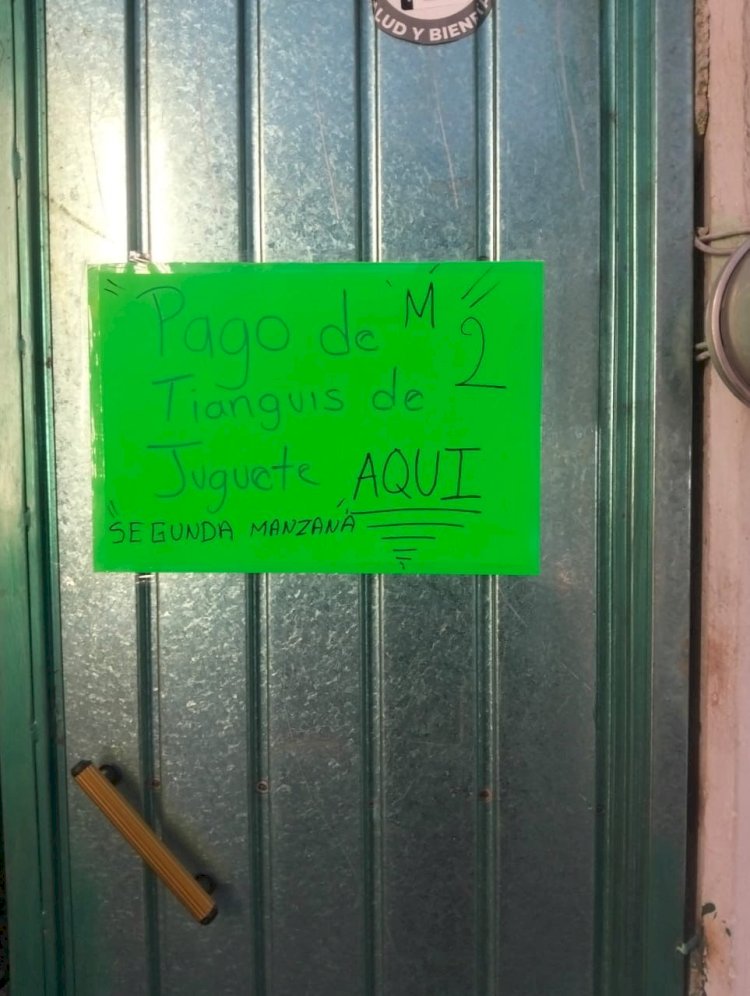 LUD Y BIENE
" Pago de "M 2"
Tianguis de
Juguete AQUI
"SEGUNDA MANZANA"